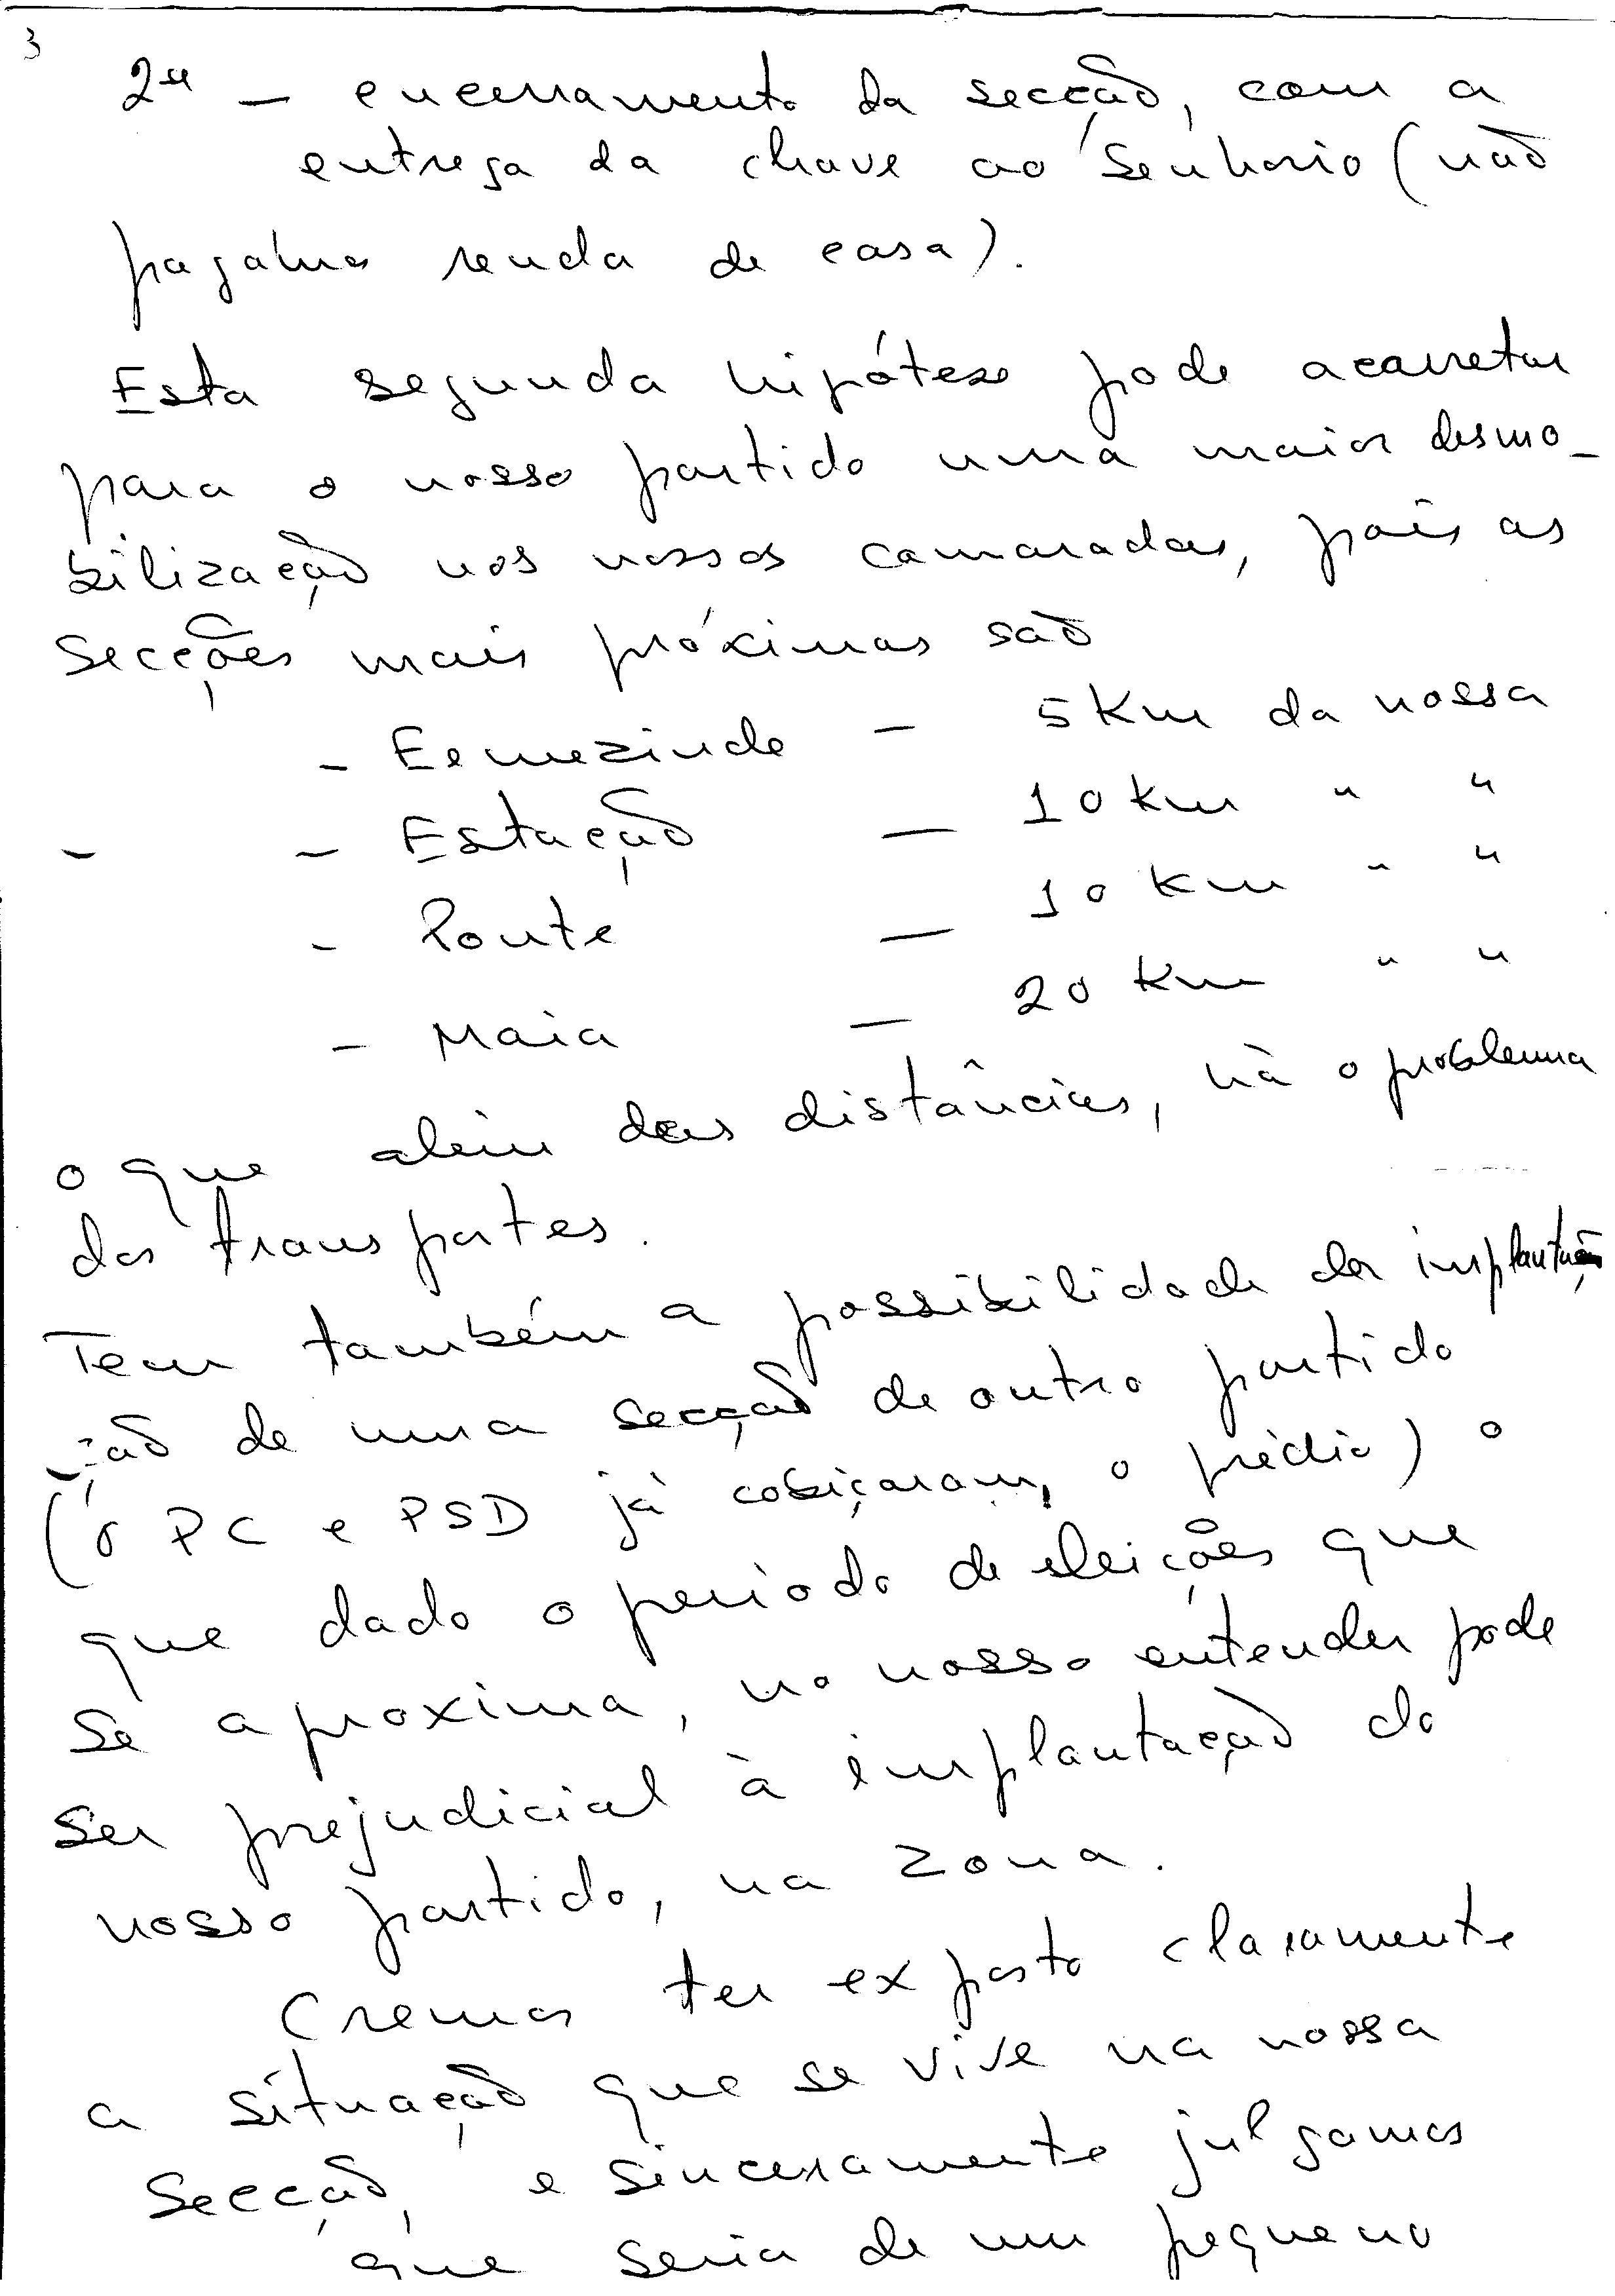 3
2ª - encerramento da secção, com a
entrega da chave ao Senhorio (não
pagamos renda de casa).
Esta segunda hipótese pode acarretar
para o nosso partido uma maior desmo-
bilização nos nossos camaradas, pois as
secções mais próximas são
- Ermezinde - 5 Km da nossa
- - Estação - 10 km " "
- Ponte - 10 Km " "
- Maia - 20 Km " "
o que além das distâncias, hà o problema
dos transportes.
Tem também a possibilidade da implantação
ção de uma secção de outro partido
(o PC e PSD já cobiçaram, o prédio) o
que dado o periodo de eleições que
se aproxima, no nosso entender pode
ser prejudicial à implantação do
nosso partido, na zona.
Cremos ter exposto claramente
a situação que se vive na nossa
Secção, e sinceramente julgamos
que seria de um pequeno